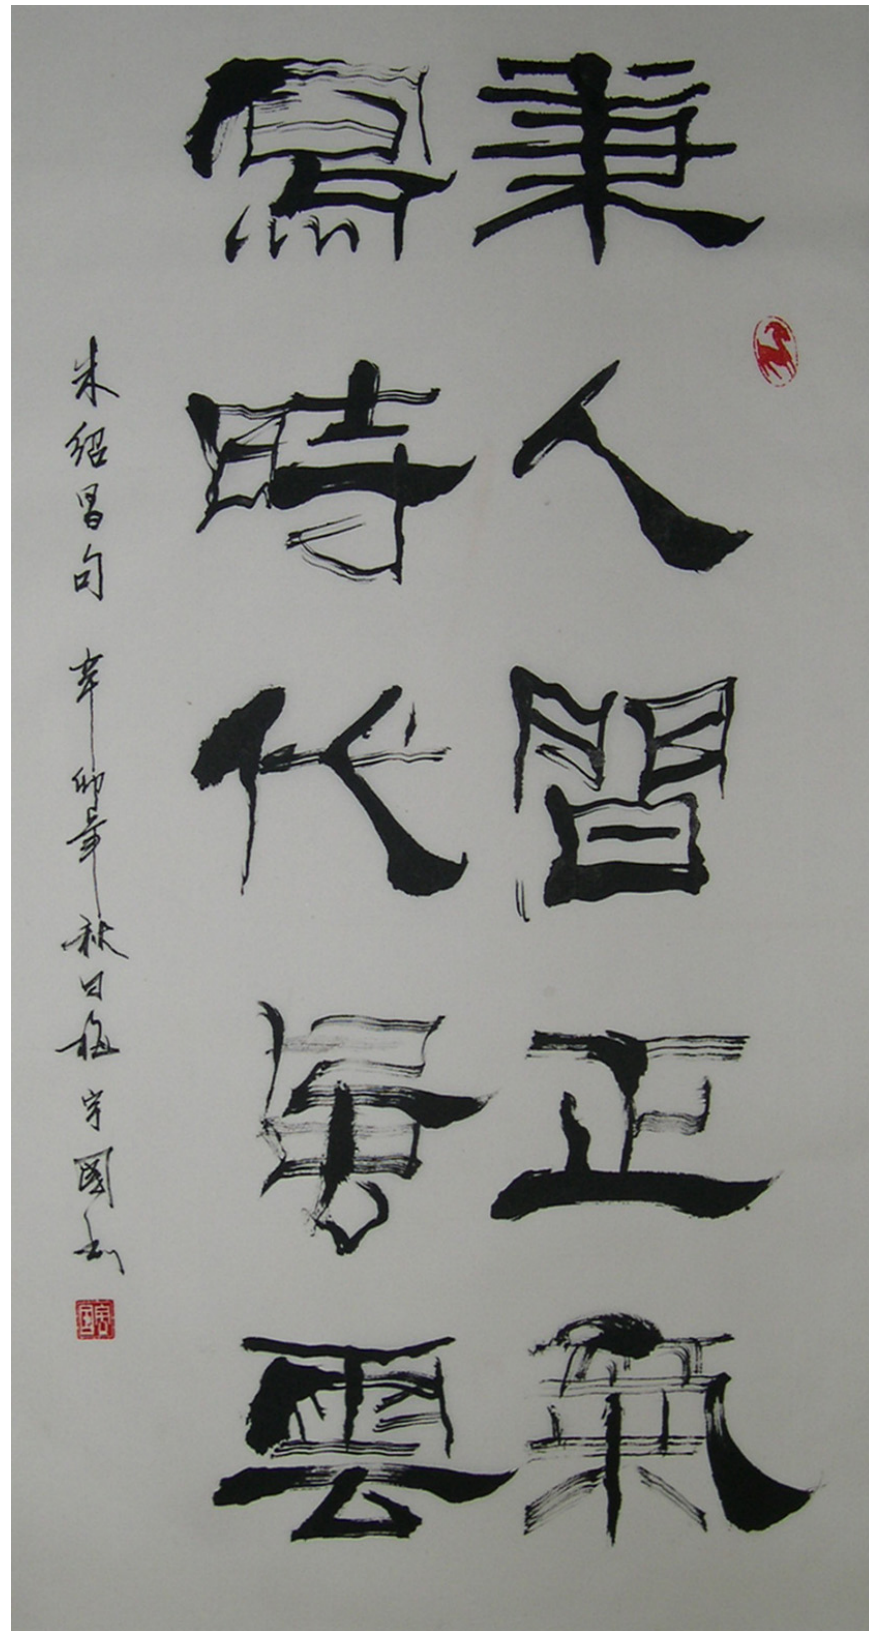 秉人間正氣
寫時代風雲
朱紹昌句 辛卯年秋日程宇國書